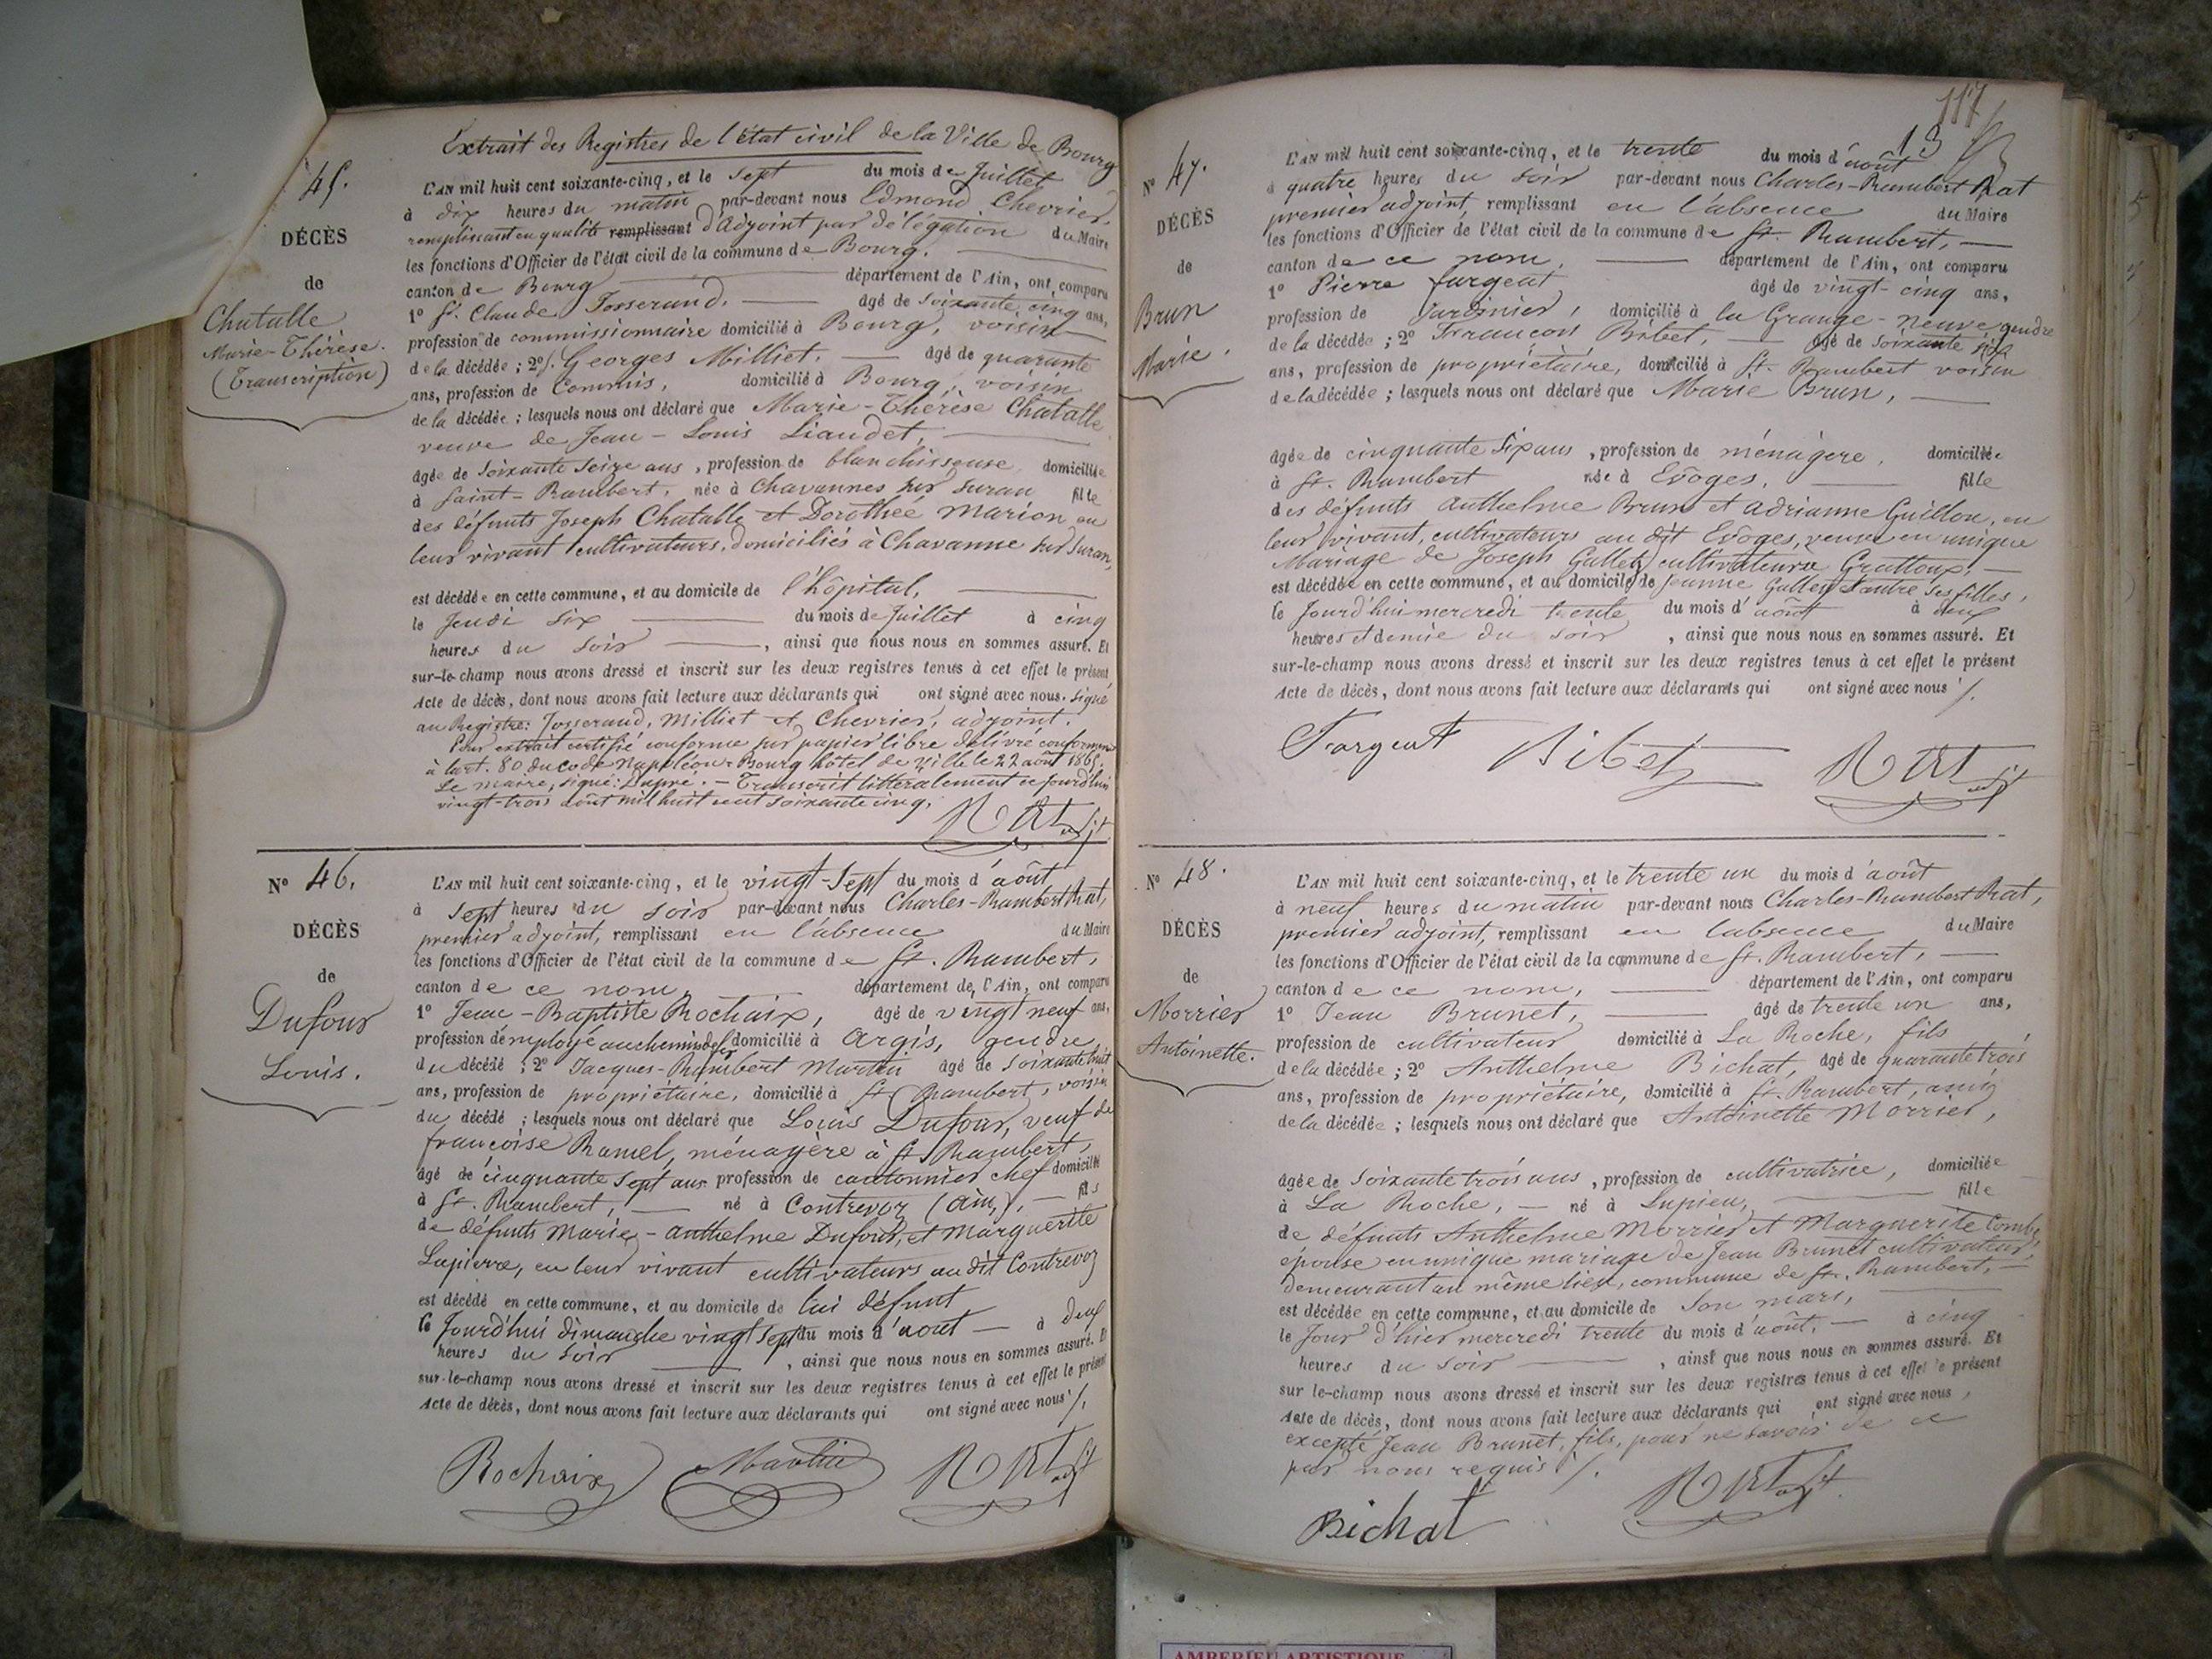 Extrait des Registres de l'état civil de la Ville de Bourg
45.
DÉCÈS
de
Chatalle
Marie-Thérèse.
(Transcription)
L'AN mil huit cent soixante-cinq, et le sept du mois de Juillet
à dix heures du matin par-devant nous Edmond Chevrier,
remplissant en qualité remplissant d'adjoint par délégation du Maire
les fonctions d'Officier de l'état civil de la commune de Bourg.
canton de Bourg département de l'Ain, ont comparu
1° St. Claude Josserand, âgé de soixante cinq ans,
profession de commissionnaire domicilié à Bourg, voisin
de la décédée ; 2° Georges Milliet, âgé de quarante
ans, profession de Commis, domicilié à Bourg, voisin
de la décédée ; lesquels nous ont déclaré que Marie-Thérèse Chatalle
veuve de Jean-Louis Liaudet,
âgée de soixante seize ans, profession de blanchisseuse, domiciliée
à Saint-Rambert, née à Chavannes sur Suran fille
des défunts Joseph Chatalle et Dorothée Marion en
leur vivant cultivateurs, domiciliés à Chavanne sur Suran,
est décédée en cette commune, et au domicile de l'hôpital,
le Jeudi six du mois de Juillet à cinq
heures du soir, ainsi que nous nous en sommes assuré. Et
sur-le-champ nous avons dressé et inscrit sur les deux registres tenus à cet effet le présent
Acte de décès, dont nous avons fait lecture aux déclarants qui ont signé avec nous. Signé
au Registre: Josserand, Milliet et Chevrier, adjoint.
Pour extrait certifié conforme sur papier libre délivré conformém
à l'art. 80 du code Napoléon. Bourg hôtel de ville le 22 août 1865.
Le maire, signé: Dupré. - Transcrit littéralement ce jourd'hui
vingt-trois août mil huit cent soixante cinq.
Rat adjt
N° 46.
DÉCÈS
de
Dufour
Louis.
L'AN mil huit cent soixante-cinq, et le vingt-sept du mois d'août
à sept heures du soir par-devant nous Charles-Rambert Rat,
premier adjoint, remplissant en l'absence du Maire
les fonctions d'Officier de l'état civil de la commune de St. Rambert,
canton de ce nom, département de l'Ain, ont comparu
1° Jean-Baptiste Rochaix, âgé de vingt neuf ans,
profession d'employé au chemin de fer domicilié à Argis, gendre
du décédé ; 2° Jacques-Rambert Martin âgé de soixante huit
ans, profession de propriétaire, domicilié à St. Rambert, voisin
du décédé ; lesquels nous ont déclaré que Louis Dufour, veuf de
françoise Ramel, ménagère à St. Rambert,
âgé de cinquante sept ans profession de cantonnier chef domicilié
à St. Rambert, né à Contrevoz (Ain), fils
de défunts Marie-Anthelme Dufour, et Marguerite
Lapierre, en leur vivant cultivateurs au dit Contrevoz
est décédé en cette commune, et au domicile de lui défunt
le Jourd'hui dimanche vingt sept du mois d'août à deux
heures du soir, ainsi que nous nous en sommes assuré. Et
sur-le-champ nous avons dressé et inscrit sur les deux registres tenus à cet effet le présent
Acte de décès, dont nous avons fait lecture aux déclarants qui ont signé avec nous ./.
Rochaix Martin Rat adjt
117
13
N° 47.
DÉCÈS
de
Brun
Marie.
L'AN mil huit cent soixante-cinq, et le trente du mois d'août
à quatre heures du soir par-devant nous Charles-Rambert Rat
premier adjoint, remplissant en l'absence du Maire
les fonctions d'Officier de l'état civil de la commune de St. Rambert,
canton de ce nom, département de l'Ain, ont comparu
1° Pierre Fargeat âgé de vingt-cinq ans,
profession de Jardinier, domicilié à la Grange-neuve gendre
de la décédée ; 2° François Bibet, âgé de soixante six
ans, profession de propriétaire, domicilié à St. Rambert voisin
de la décédée ; lesquels nous ont déclaré que Marie Brun,
âgée de cinquante six ans, profession de ménagère, domiciliée
à St. Rambert née à Evoges, fille
des défunts Anthelme Brun et Adrianne Guillon, en
leur vivant, cultivateurs au dit Evoges, veuve en unique
Mariage de Joseph Gallet, cultivateur à Grattoux,
est décédée en cette commune, et au domicile de Jeanne Gallet l'autre ses filles,
le Jourd'hui mercredi trente du mois d'août à deux
heures et demie du soir, ainsi que nous nous en sommes assuré. Et
sur-le-champ nous avons dressé et inscrit sur les deux registres tenus à cet effet le présent
Acte de décès, dont nous avons fait lecture aux déclarants qui ont signé avec nous ./.
Fargeat Bibet Rat adjt
N° 48.
DÉCÈS
de
Morrier
Antoinette.
L'AN mil huit cent soixante-cinq, et le trente un du mois d'août
à neuf heures du matin par-devant nous Charles-Rambert Rat,
premier adjoint, remplissant en l'absence du Maire
les fonctions d'Officier de l'état civil de la commune de St. Rambert,
canton de ce nom, département de l'Ain, ont comparu
1° Jean Brunet, âgé de trente un ans,
profession de cultivateur domicilié à La Roche, fils
de la décédée ; 2° Anthelme Bichat, âgé de quarante trois
ans, profession de propriétaire, domicilié à St. Rambert, ami
de la décédée ; lesquels nous ont déclaré que Antoinette Morrier,
âgée de soixante trois ans, profession de cultivatrice, domiciliée
à La Roche, né à Lupieu, fille
de défunts Anthelme Morrier et Marguerite Combe,
épouse en unique mariage de Jean Brunet cultivateur,
demeurant au même lieu, commune de St. Rambert,
est décédée en cette commune, et au domicile de son mari,
le Jour d'hier mercredi trente du mois d'août, à cinq
heures du soir, ainsi que nous nous en sommes assuré. Et
sur le-champ nous avons dressé et inscrit sur les deux registres tenus à cet effet le présent
Acte de décès, dont nous avons fait lecture aux déclarants qui ont signé avec nous,
excepté Jean Brunet, fils, pour ne savoir de ce
par nous requis ./.
Bichat Rat adjt
AMBERIEU ARTISTIQUE